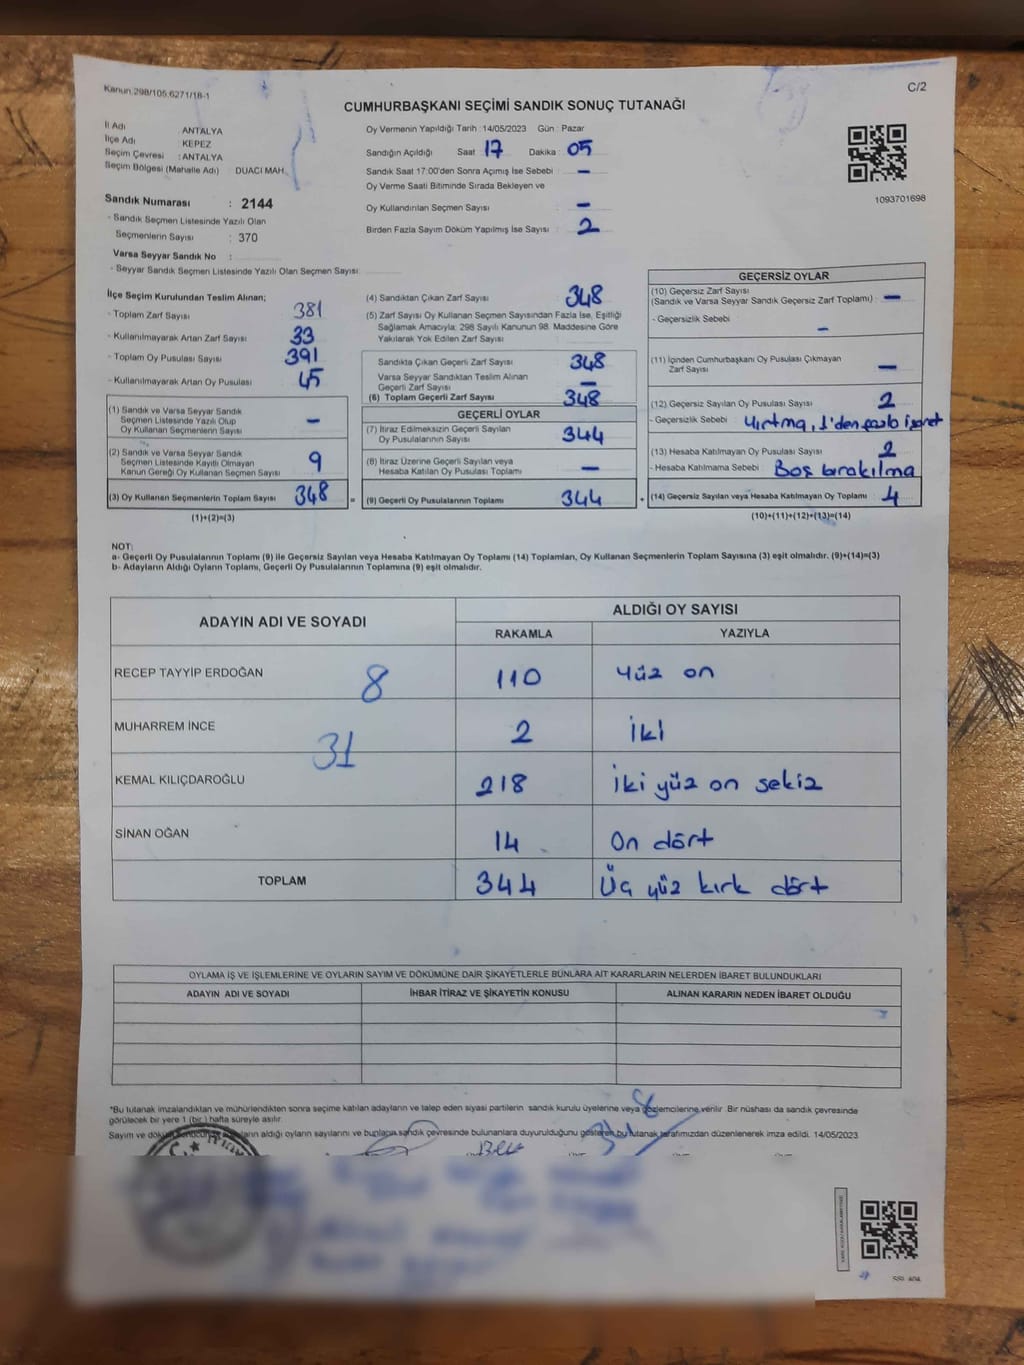 Kanun.298/105,6271/18-1
C/2
CUMHURBAŞKANI SEÇİMİ SANDIK SONUÇ TUTANAĞI
İl Adı ANTALYA
İlçe Adı KEPEZ
Seçim Çevresi : ANTALYA
Seçim Bölgesi (Mahalle Adı) DUACI MAH.
Sandık Numarası : 2144
- Sandık Seçmen Listesinde Yazılı Olan
Seçmenlerin Sayısı : 370
Varsa Seyyar Sandık No :
- Seyyar Sandık Seçmen Listesinde Yazılı Olan Seçmen Sayısı:
Oy Vermenin Yapıldığı Tarih :14/05/2023 Gün : Pazar
Sandığın Açıldığı Saat 17 Dakika 05
Sandık Saat 17:00'den Sonra Açımış İse Sebebi –
Oy Verme Saati Bitiminde Sırada Bekleyen ve
Oy Kullandırılan Seçmen Sayısı –
Birden Fazla Sayım Döküm Yapılmış İse Sayısı 2
1093701698
İlçe Seçim Kurulundan Teslim Alınan;
- Toplam Zarf Sayısı 381
- Kullanılmayarak Artan Zarf Sayısı 33
- Toplam Oy Pusulası Sayısı 391
- Kullanılmayarak Artan Oy Pusulası 45
(1) Sandık ve Varsa Seyyar Sandık
Seçmen Listesinde Yazılı Olup
Oy Kullanan Seçmenlerin Sayısı –
(2) Sandık ve Varsa Seyyar Sandık
Seçmen Listesinde Kayıtlı Olmayan
Kanun Gereği Oy Kullanan Seçmen Sayısı 9
(3) Oy Kullanan Seçmenlerin Toplam Sayısı 348 =
(1)+(2)=(3)
(4) Sandıktan Çıkan Zarf Sayısı 348
(5) Zarf Sayısı Oy Kullanan Seçmen Sayısından Fazla İse, Eşitliği
Sağlamak Amacıyla; 298 Sayılı Kanunun 98. Maddesine Göre
Yakılarak Yok Edilen Zarf Sayısı
Sandıkta Çıkan Geçerli Zarf Sayısı 348
Varsa Seyyar Sandıktan Teslim Alınan
Geçerli Zarf Sayısı –
(6) Toplam Geçerli Zarf Sayısı 348
GEÇERLİ OYLAR
(7) İtiraz Edilmeksizin Geçerli Sayılan
Oy Pusulalarının Sayısı 344
(8) İtiraz Üzerine Geçerli Sayılan veya
Hesaba Katılan Oy Pusulası Toplamı –
(9) Geçerli Oy Pusulalarının Toplamı 344 +
GEÇERSİZ OYLAR
(10) Geçersiz Zarf Sayısı
(Sandık ve Varsa Seyyar Sandık Geçersiz Zarf Toplamı) : –
- Geçersizlik Sebebi –
(11) İçinden Cumhurbaşkanı Oy Pusulası Çıkmayan
Zarf Sayısı –
(12) Geçersiz Sayılan Oy Pusulası Sayısı 2
- Geçersizlik Sebebi : Yırtma, 1'den fazla işaret
(13) Hesaba Katılmayan Oy Pusulası Sayısı 2
- Hesaba Katılmama Sebebi : Boş bırakılma
(14) Geçersiz Sayılan veya Hesaba Katılmayan Oy Toplamı 4
(10)+(11)+(12)+(13)=(14)
NOT:
a- Geçerli Oy Pusulalarının Toplamı (9) ile Geçersiz Sayılan veya Hesaba Katılmayan Oy Toplamı (14) Toplamları, Oy Kullanan Seçmenlerin Toplam Sayısına (3) eşit olmalıdır. (9)+(14)=(3)
b- Adayların Aldığı Oyların Toplamı, Geçerli Oy Pusulalarının Toplamına (9) eşit olmalıdır.
ADAYIN ADI VE SOYADI ALDIĞI OY SAYISI
RAKAMLA YAZIYLA
RECEP TAYYİP ERDOĞAN 8 110 Yüz on
MUHARREM İNCE 2 İki
31
KEMAL KILIÇDAROĞLU 218 İki yüz on sekiz
SİNAN OĞAN 14 On dört
TOPLAM 344 Üç yüz kırk dört
OYLAMA İŞ VE İŞLEMLERİNE VE OYLARIN SAYIM VE DÖKÜMÜNE DAİR ŞİKAYETLERLE BUNLARA AİT KARARLARIN NELERDEN İBARET BULUNDUKLARI
ADAYIN ADI VE SOYADI İHBAR İTİRAZ VE ŞİKAYETİN KONUSU ALINAN KARARIN NEDEN İBARET OLDUĞU
*Bu tutanak imzalandıktan ve mühürlendikten sonra seçime katılan adayların ve talep eden siyasi partilerin sandık kurulu üyelerine veya gözlemcilerine verilir. Bir nüshası da sandık çevresinde
görülecek bir yere 1 (bir ) hafta süreyle asılır.
8
Sayım ve döküm aldığı oyların sayılarını ve sandık çevresinde bulunanlara duyurulduğunu gösteren bu tutanak tarafımızdan düzenlenerek imza edildi. 14/05/2023
31